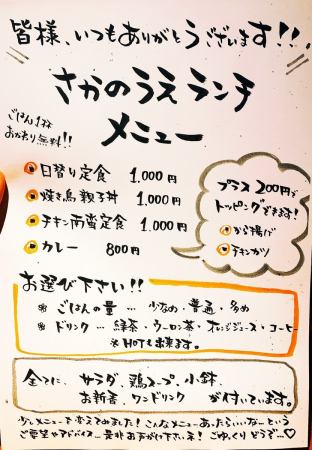 皆様、いつもありがとうございます!!
さかのうえランチ
メニュー
ごはん1杯
おかわり無料!!
日替り定食 1,000円
焼き鳥親子丼 1,000円
チキン南蛮定食 1,000円
カレー 800円
プラス200円で
トッピングできます!
から揚げ
チキンカツ
お選び下さい!!
※ ごはんの量 … 少なめ・普通・多め
※ ドリンク … 緑茶・ウーロン茶・オレンジジュース・コーヒー
※HOTも出来ます。
全てに、サラダ、鶏スープ、小鉢、
お新香、ワンドリンク が付いています。
少しメニューを変えてみました!こんなメニューあったらいいなーという
ご要望やアドバイス…是非お声がけ下さいネ!ごゆっくりどうぞー♡